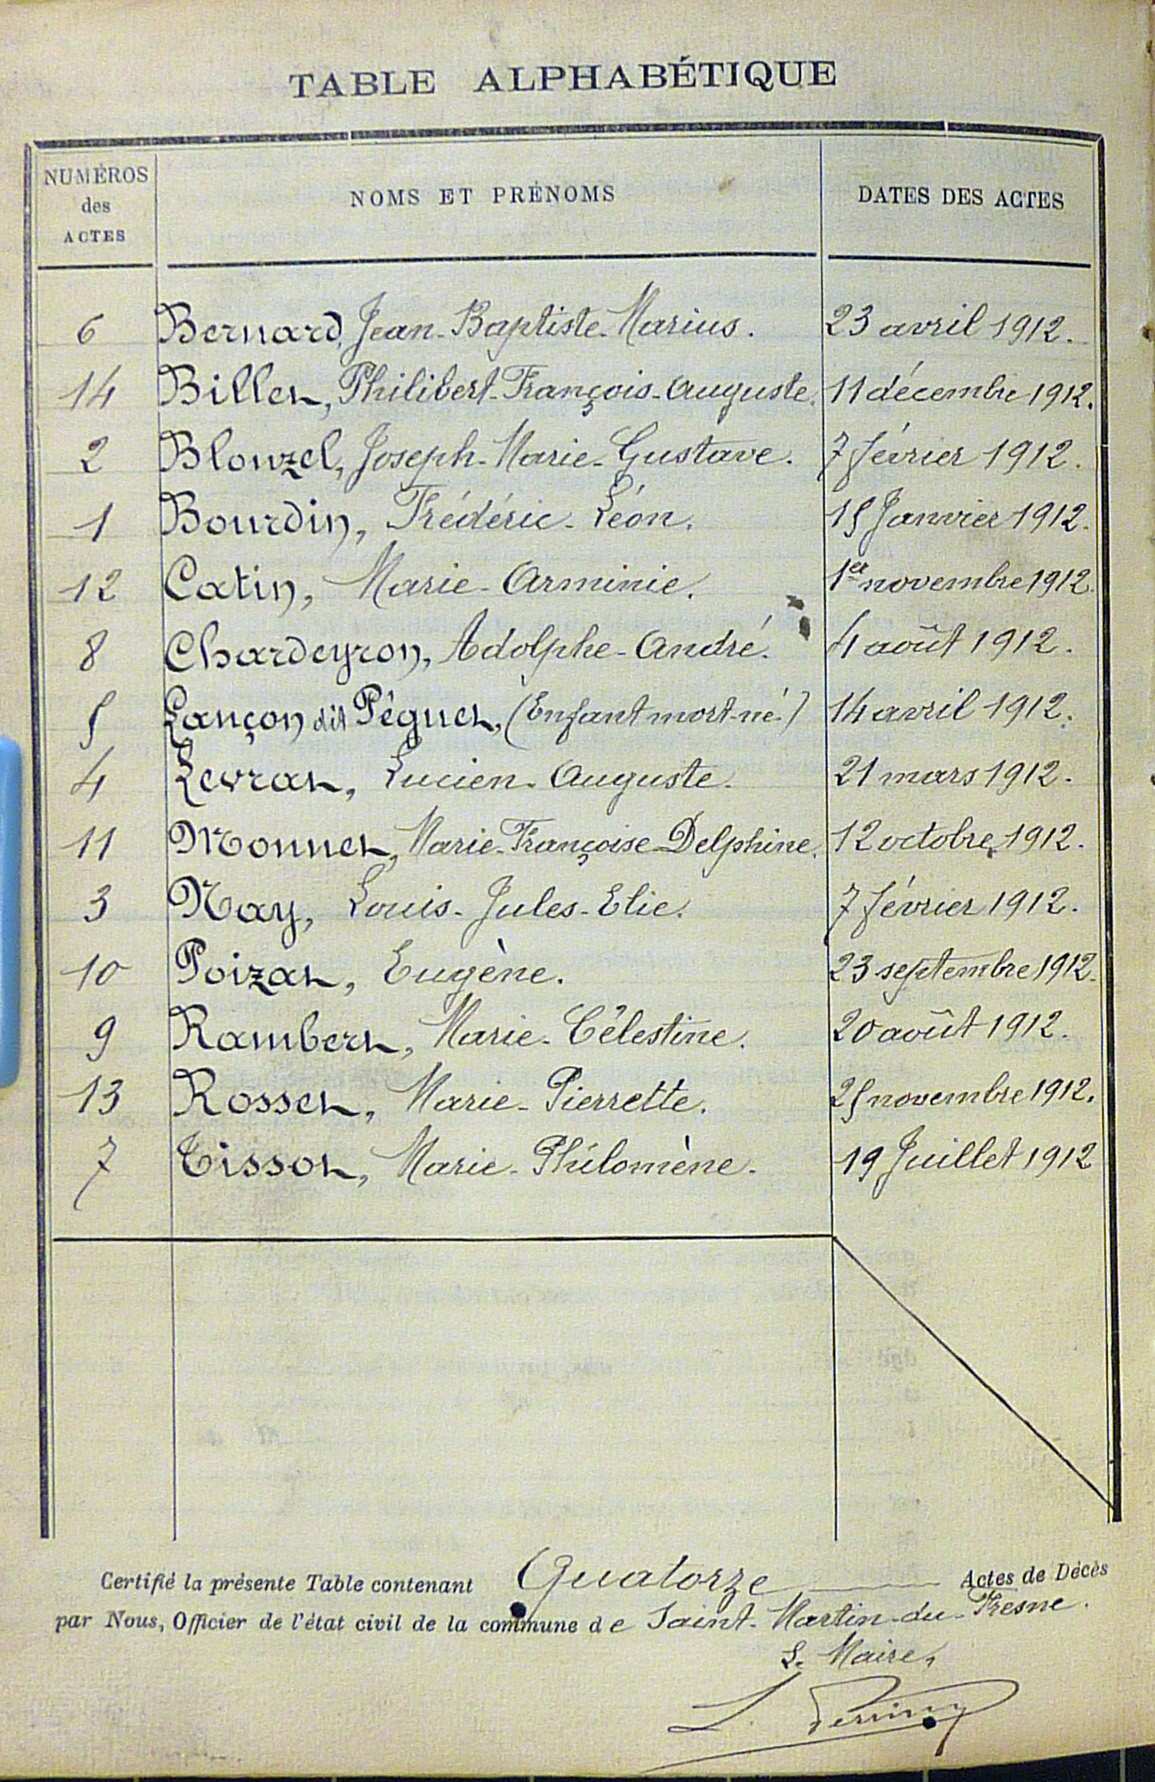 TABLE ALPHABÉTIQUE
NUMÉROS des ACTES NOMS ET PRÉNOMS DATES DES ACTES
6 Bernard, Jean-Baptiste-Marius. 23 avril 1912.
14 Billet, Philibert-François-Auguste. 11 décembre 1912.
2 Blonzel, Joseph-Marie-Gustave. 7 février 1912.
1 Bourdin, Frédéric-Léon. 15 Janvier 1912.
12 Catin, Marie-Arminie. 1er novembre 1912.
8 Chardeyron, Adolphe-André. 4 août 1912.
5 Lançon dit Péguet, (Enfant mort-né) 14 avril 1912.
4 Levrat, Lucien-Auguste. 21 mars 1912.
11 Monnet, Marie-Françoise-Delphine. 12 octobre 1912.
3 Nay, Louis-Jules-Elie. 7 février 1912.
10 Poizat, Eugène. 23 septembre 1912.
9 Rambert, Marie-Célestine. 20 août 1912.
13 Rosset, Marie-Pierrette. 25 novembre 1912.
7 Tissot, Marie-Philomène. 19 Juillet 1912
Certifié la présente Table contenant Quatorze Actes de Décès
par Nous, Officier de l'état civil de la commune de Saint-Martin-du-Fresne.
Le Maire,